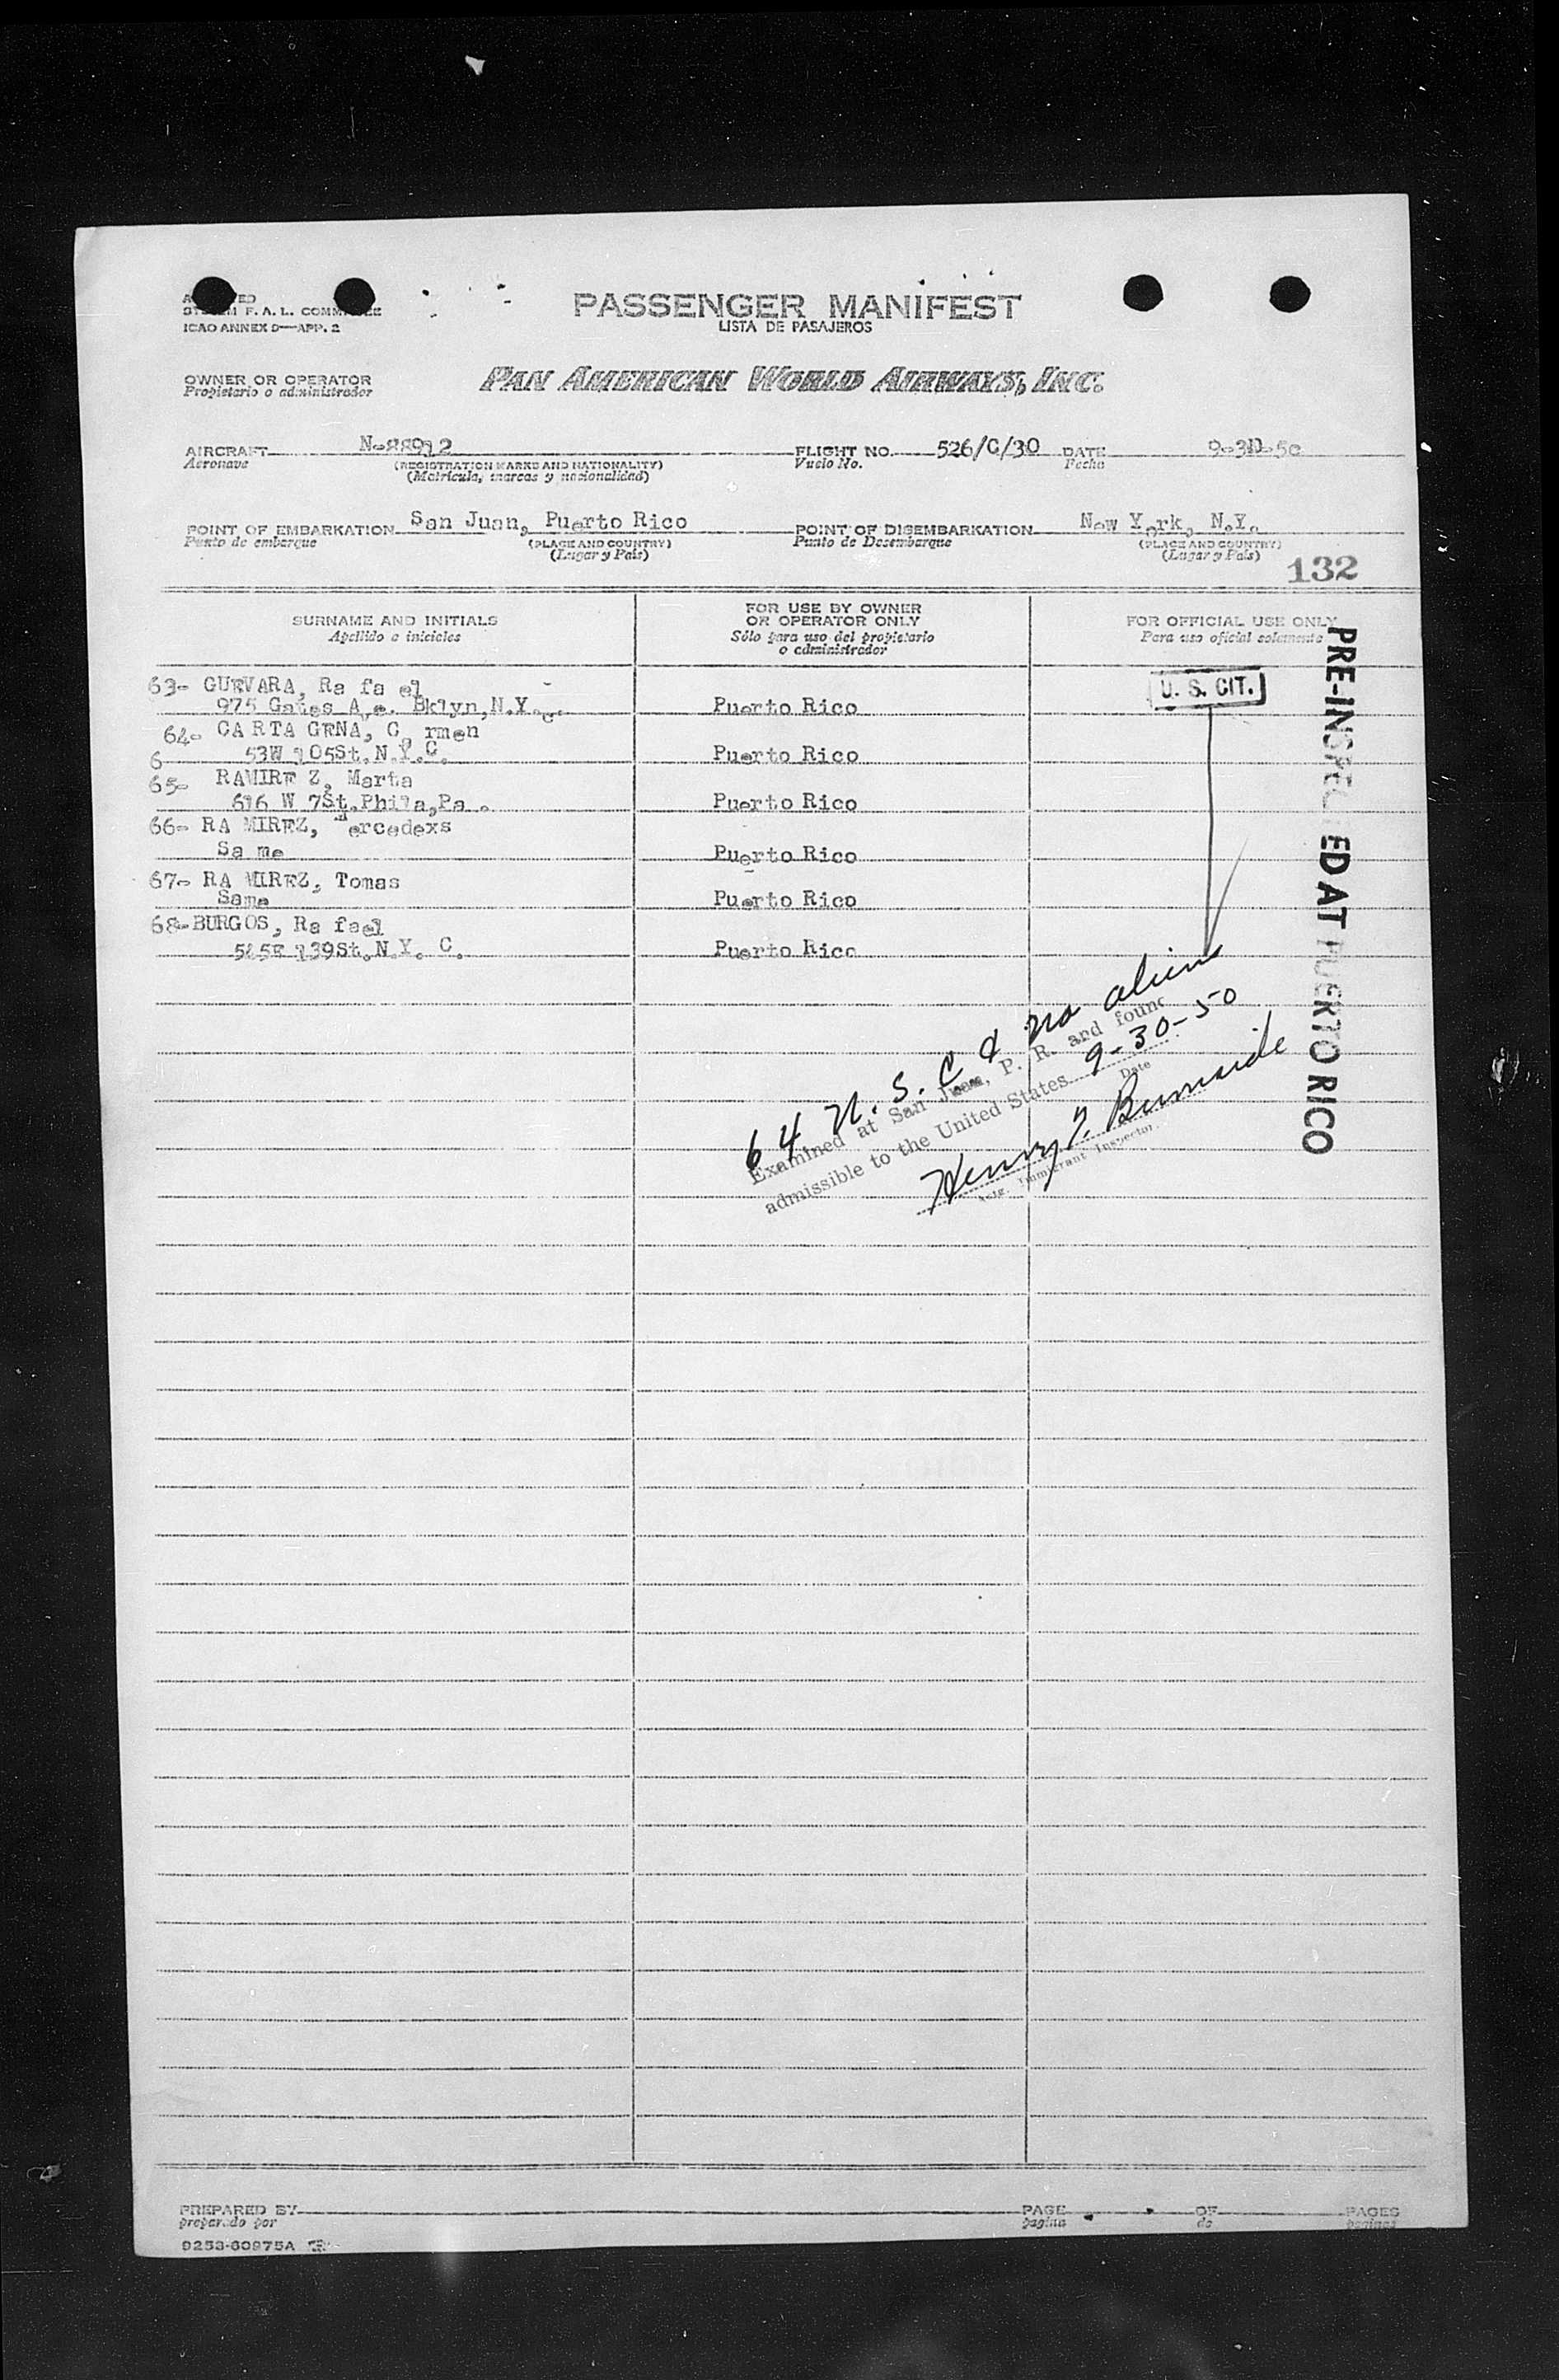 PASSENGER MANIFEST
LISTA DE PASAJEROS
F. A. L.
ICAO ANNEX 9—APP. 2
OWNER OR OPERATOR
Propietario o administrador
PAN AMERICAN WORLD AIRWAYS, INC.
AIRCRAFT N-88912 FLIGHT NO. 526/C/30 DATE 9-30-50
Aeronave (REGISTRATION MARKS AND NATIONALITY) Vuelo No. Fecha
(Matricula, marcas y nacionalidad)
POINT OF EMBARKATION San Juan, Puerto Rico POINT OF DISEMBARKATION New York, N.Y.
Punto de embarque (PLACE AND COUNTRY) Punto de Desembarque (PLACE AND COUNTRY)
(Lugar y País) (Lugar y País)
132
SURNAME AND INITIALS FOR USE BY OWNER OR OPERATOR ONLY FOR OFFICIAL USE ONLY
Apellido e iniciales Sólo para uso del propietario o administrador Para uso oficial solamente
63- GUEVARA, Ra fa el U. S. CIT.
975 Gates Ave. Bklyn, N.Y. Puerto Rico
64- CARTA GENA, Carmen
6 53W 105St. N.Y.C. Puerto Rico
65- RAMIRE Z, Marta
616 W 7St. Phila, Pa. Puerto Rico
66- RA MIREZ, Mercedexs
Sa me Puerto Rico
67- RA MIREZ, Tomas
Same Puerto Rico
68-BURGOS, Ra fael
139St. N.Y. C. Puerto Rico
PRE-INSPECTED AT PUERTO RICO
64 U. S. C & no aliens
Examined at San Juan, P. R. and found
admissible to the United States 9-30-50
Date
Henry Burnside
Immigrant Inspector
PREPARED BY PAGE OF PAGES
preparado por pagina de paginas
9253-60975A